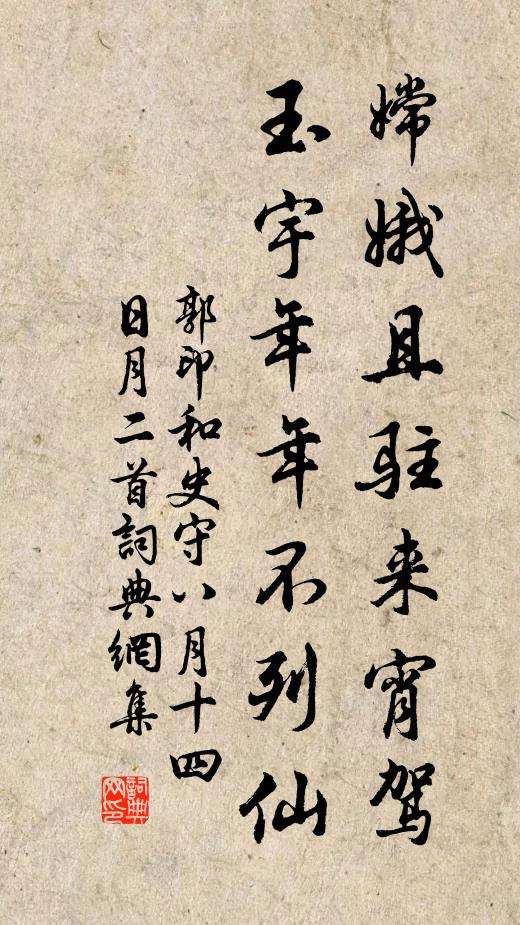 嫦娥且駐来宵駕
玉宇年年不列仙
郭印和史守八月十四
日月二首詞典網集
詞典网印